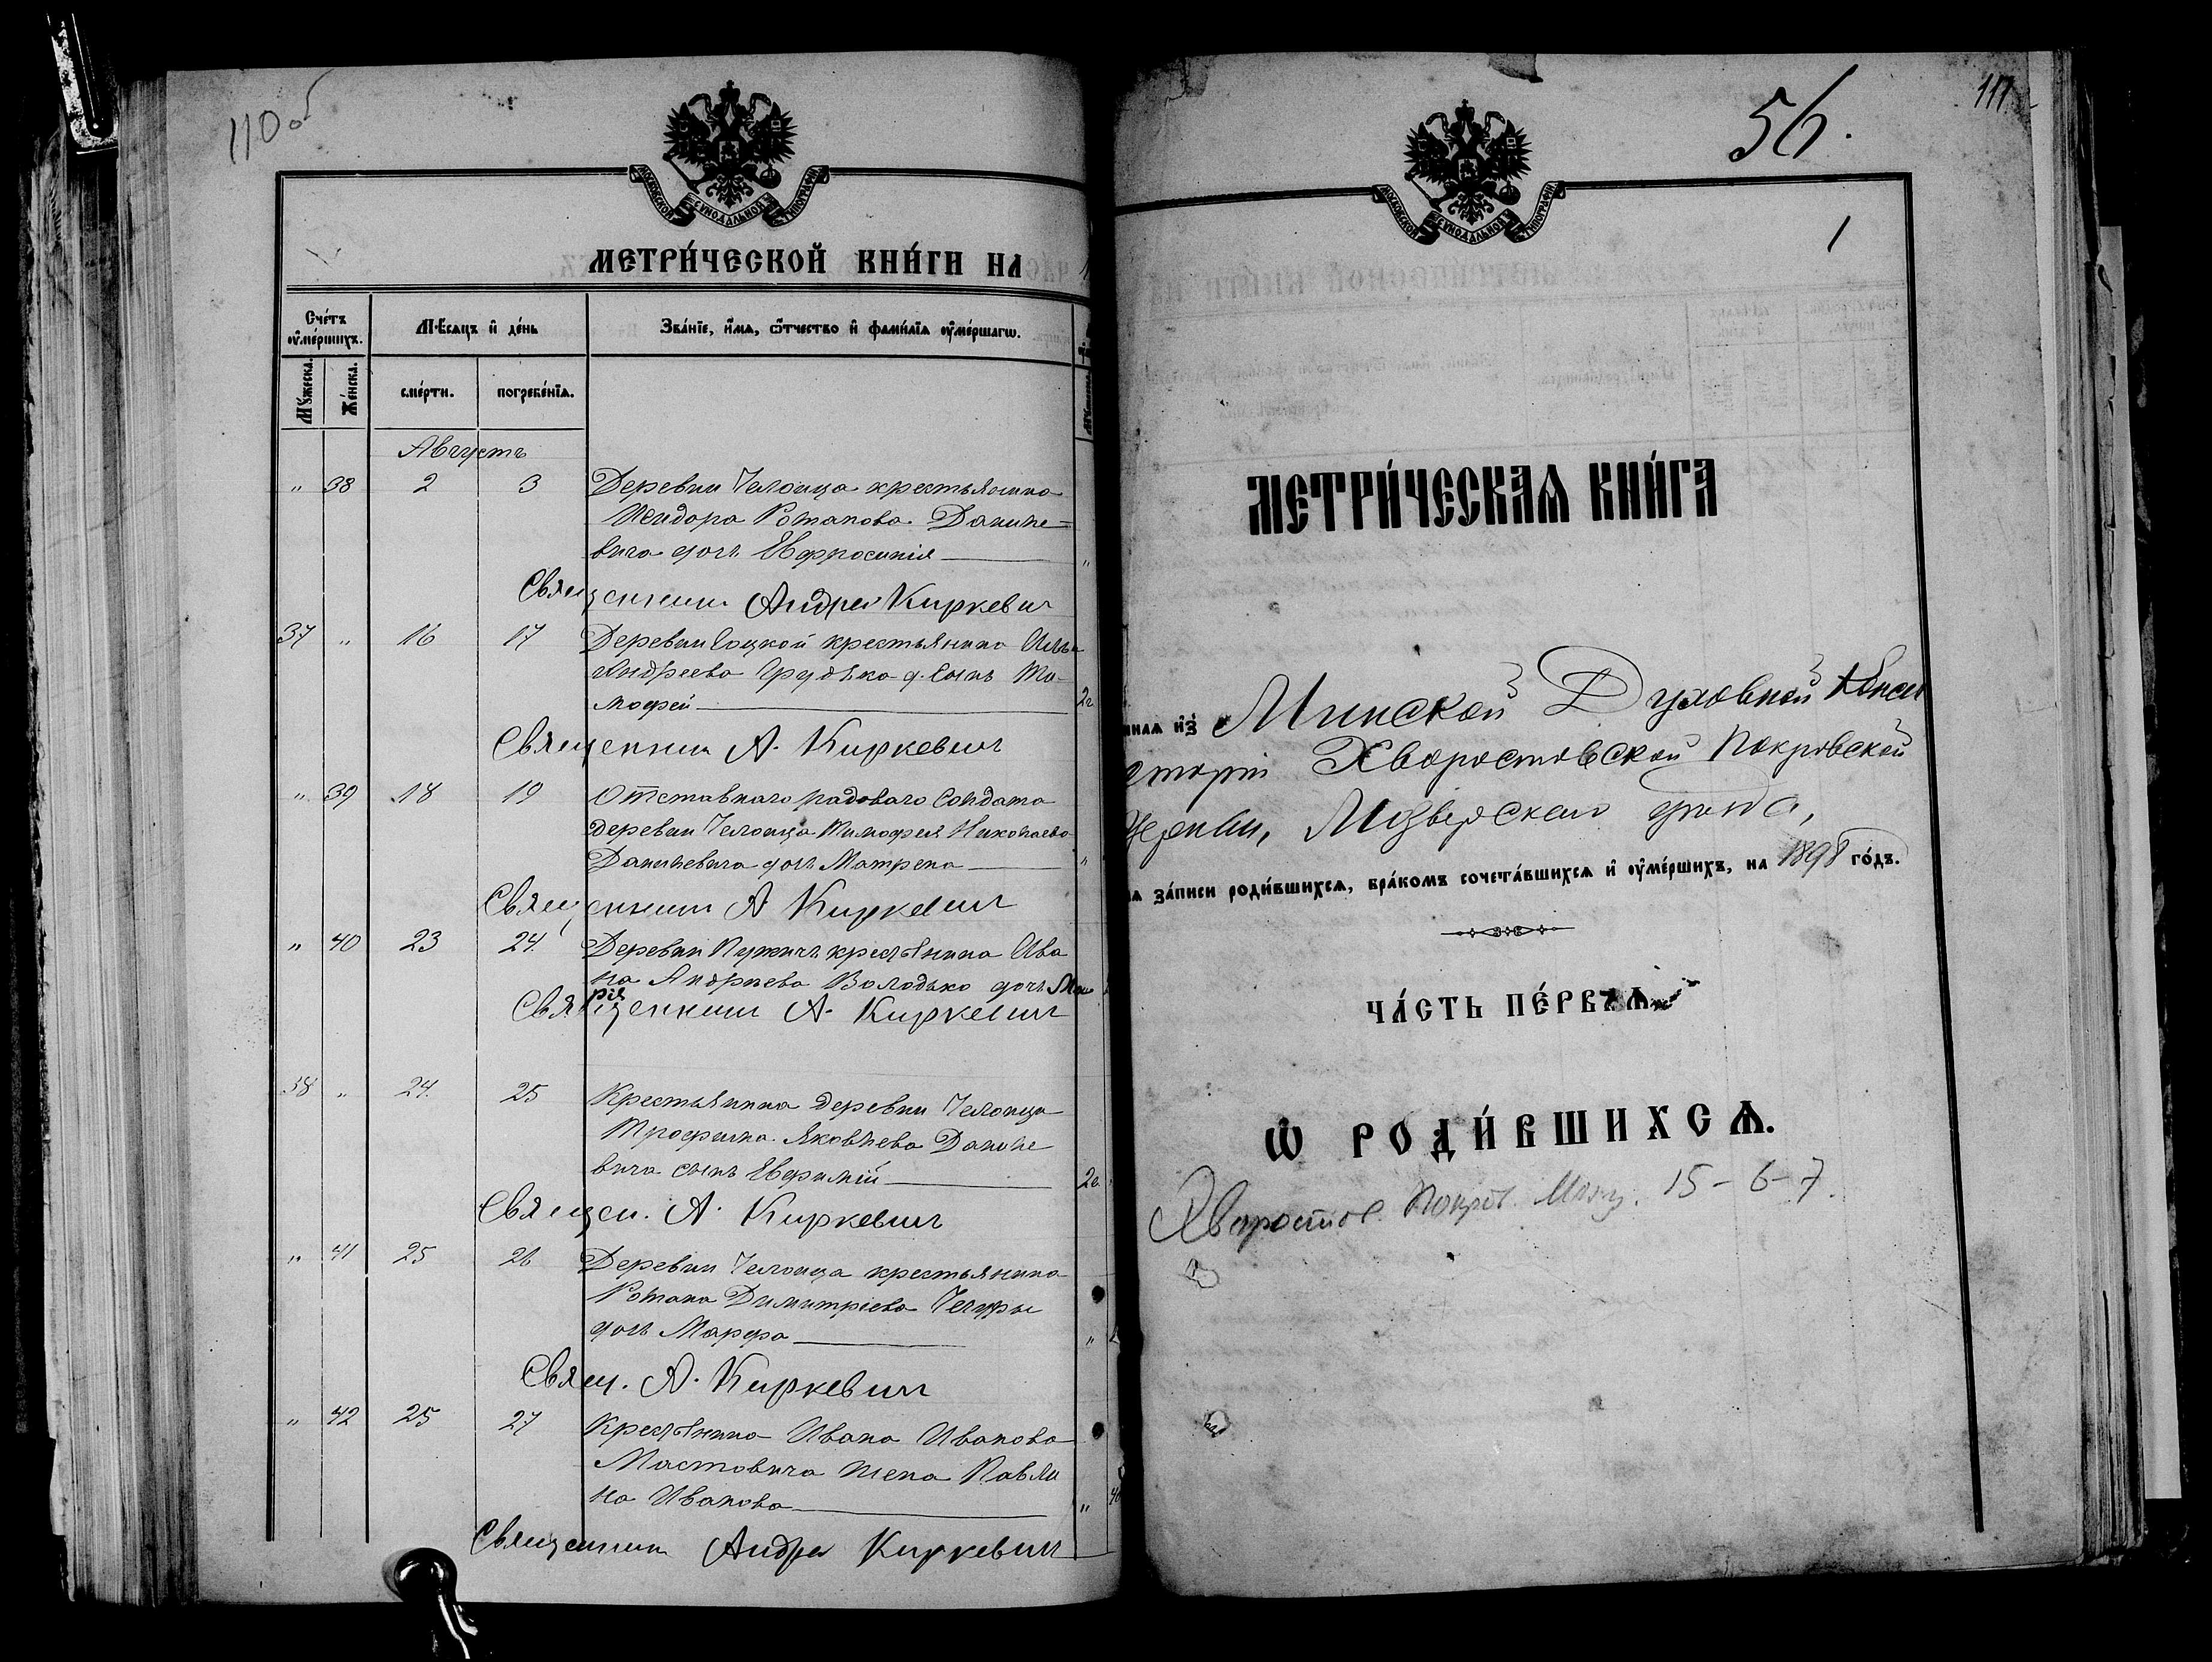 110 об
МОСКОВСКОЙ СѴНОДАЛЬНОЙ ТИПОГРАФІИ
МЕТРИ́ЧЕСКОЙ КНИ́ГИ НА
Сче́тъ ᲂу҆ме́ршихъ.
Мѣсяцъ и҆ де́нь
Зва́нїе, и҆́мѧ, ѻ҆́тчество и҆ фами́лїѧ ᲂу҆ме́ршагѡ.
Му́жеска.
Же́нска.
сме́рти.
погребе́нїѧ.
Августъ
" 38 2 3 Деревни Челонца крестьянина
Исидора Романова Даниле=
вича дочь Евфросинія
Священникъ Андрей Киркевич
37 " 16 17 Деревни Соцкой крестьянина Ильи
Андреева Грудько д. сынъ Ти-
мофей 2г
Священник А. Киркевич
" 39 18 19 Отставнаго рядоваго солдата
деревни Челонца Тимофея Николаева
Данилевича дочь Матрена "
Священник А Киркевич
" 40 23 24. Деревни Пужичъ крестьянина Ива
на Андреева Володько дочь Ма
рія
Священник А. Киркевич
38 " 24. 25 Крестьянина деревни Челонца
Трофима Яковлева Даниле
вича сынъ Евфимій 2г.
Священ. А. Киркевич
" 41 25 26 Деревни Челонца крестьянина
Романа Димитріева
дочь Марфа "
Свящ. А. Киркевич
" 42 25 27 Крестьянина Ивана Иванова
Мастовича жена Павли
на Иванова "
Священник Андрей Киркевич
56.
117
1
МОСКОВСКОЙ СѴНОДАЛЬНОЙ ТИПОГРАФІИ
МЕТРИ́ЧЕСКАѦ КНИ́ГА
ннаѧ и҆з̾ Минской Духовной Конси
сторіи Хворостовской Покровской
Церкви, Мозырскаго уѣзда,
за́писи роди́вшихсѧ, бра́комъ сочета́вшихсѧ и҆ ᲂу҆ме́ршихъ, на 1898 го́дъ.
ЧА́СТЬ ПЕ́РВАѦ
Ѡ҆ РОДИ́ВШИХСѦ.
Хворостов. Покров. Мозы. 15-6-7.